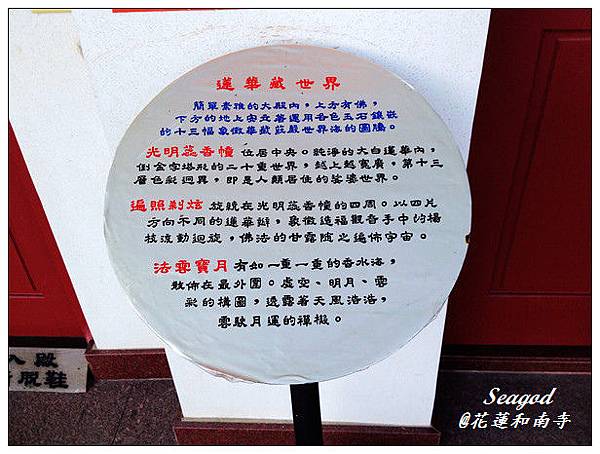 蓮華藏世界
簡單素雅的大殿內，上方有佛，
下方的地上安放著運用各色玉石鑲嵌
的十三幅象徵華藏莊嚴世界海的圖騰。
光明蕊香幢 位居中央。乾淨的大白蓮華內，
倒金字塔形的二十重世界，越上越寬廣，第十三
層色彩迥異，即是人類居住的娑婆世界。
遍照刹炫 旋繞在光明蕊香幢的四周。以四片
方向不同的蓮華瓣，象徵造福觀音手中的楊
枝流動迴旋，佛法的甘露隨之遍佈宇宙。
法雲寶月 有如一重一重的香水海，
散佈在最外圍。虛空、明月、雲
彩的構圖，透露著天風浩浩，
雲駛月運的禪機。
入殿
脫鞋
Seagod
@花蓮和南寺